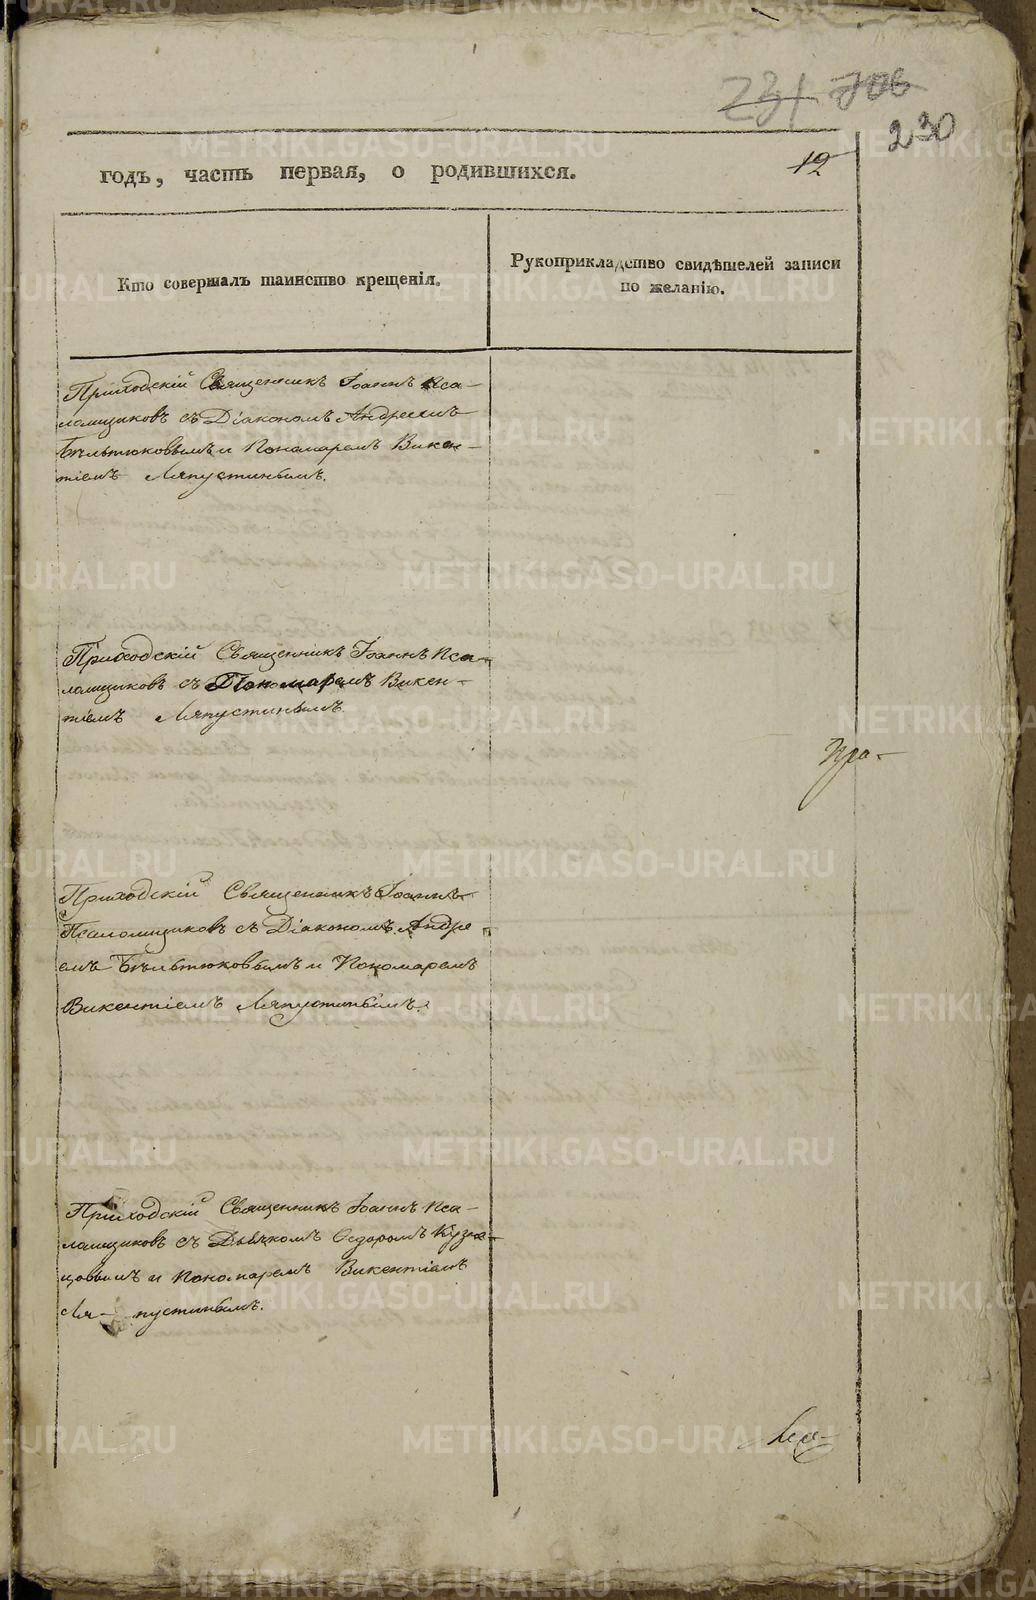 231 706
230
12
годъ, часть первая, о родившихся.
Кто совершалъ таинство крещенія.
Рукоприкладство свидѣтелей записи
по желанію.
Приходскій Священникъ Іоаннъ Пса-
ломщиковъ съ Діакономъ Андреемъ
Бѣльтюковымъ и Пономаремъ Викен-
тіемъ Ляпустинымъ.
Приходскій Священникъ Іоаннъ Пса-
ломщиковъ съ Пономаремъ Викен-
тіемъ Ляпустинымъ.
Приходскій Священникъ Іоаннъ
Псаломщиковъ съ Діакономъ Андре
емъ Бѣльтюковымъ и Пономаремъ
Викентіемъ Ляпустинымъ.
Приходскій Священникъ Іоаннъ Пса-
ломщиковъ съ Дьячкомъ Ѳедоромъ Кузне-
цовымъ и Пономаремъ Викентіемъ
Ля- пустинымъ.
METRIKI.GASO-URAL.RU